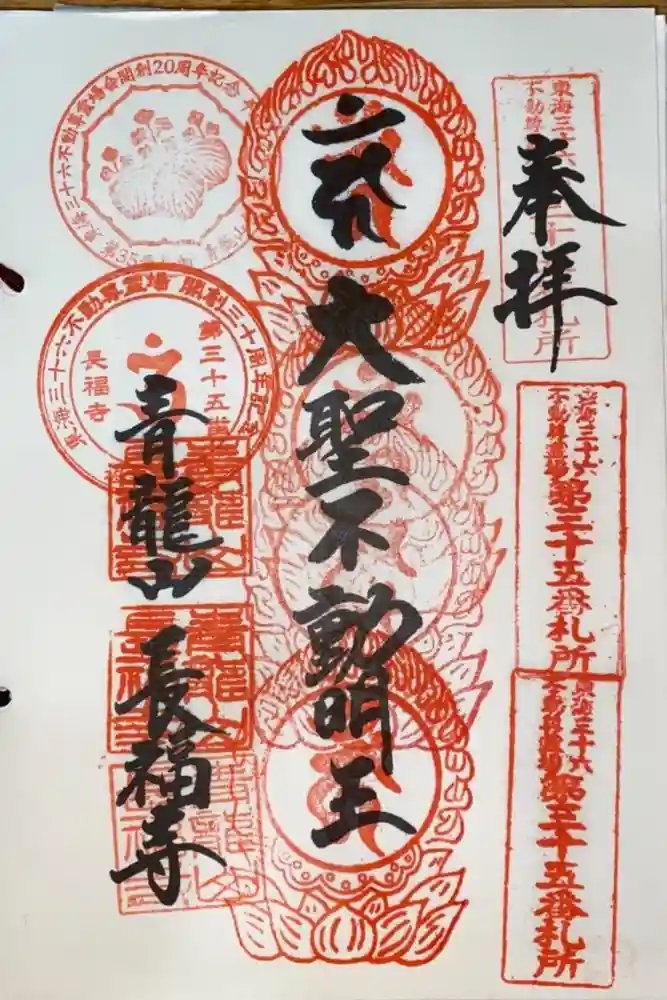 奉拝
東海三十六
不動尊霊場
第三十五番札所
東海三十六
不動尊霊場
第三十五番札所
大聖不動明王
東海三十六不動尊霊場会開創20周年記念
第35番札所 青龍山
東海三十六不動尊霊場 開創三十周年記念
第三十五番
長福寺
青龍山
長福寺